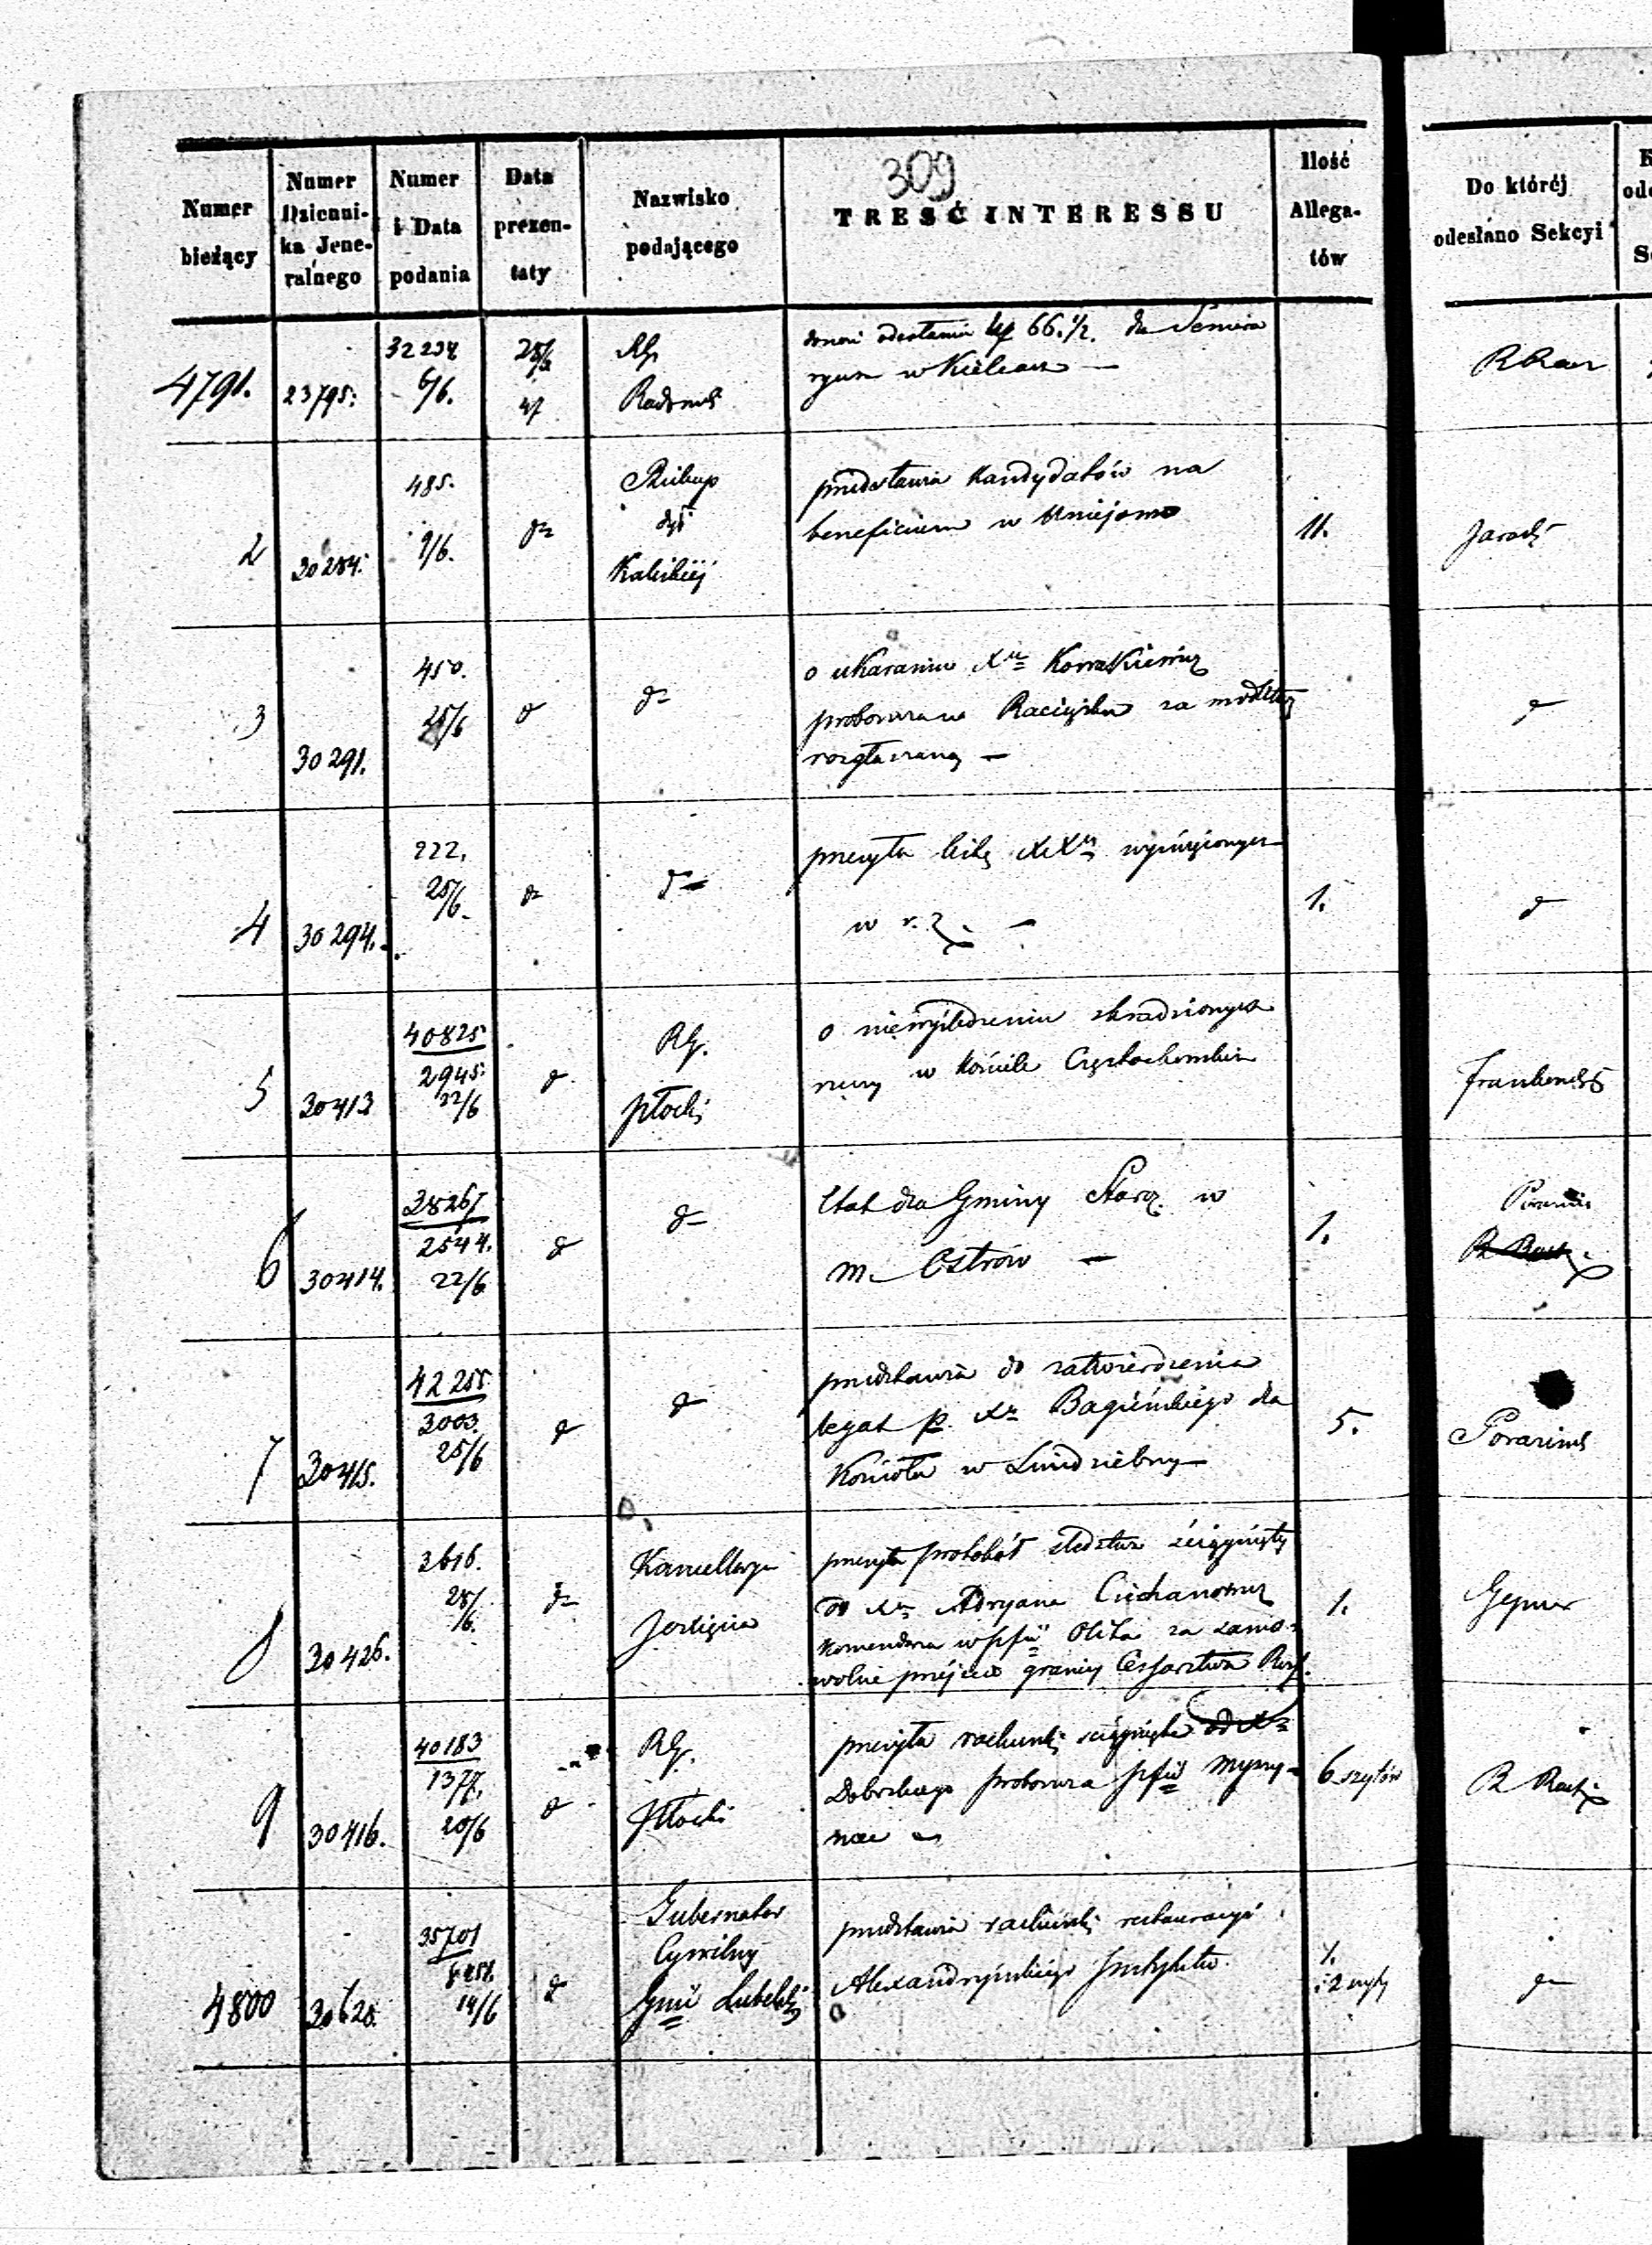 309
Numer bieżący
Numer Dziennika Jeneralnego
Numer i Data podania
Data prezentaty
Nazwisko podającego
TREŚĆ INTERESSU
Ilość Allegatów
Do któréj odesłano Sekcyi
4791.
23795.
32234
6/6.
28/6
47
RG.
Radomski
donosi odesłaniu 66.1/2. dla Semina
ryum w Kielcach —
2
30284.
485.
9/6.
do
Biskup
dyi
Kaliskiej
przedstawia Kandydatów na
beneficium w Uniejowie
11.
3
30291.
450.
25/6
do
do
o ukaranie Xa Kowalkiewicz
proboszcza w Raciążku za modlitwę
rozgłaszaną —
do
4
30294.
222.
25/6.
do
do
przesyła listę XXży wyświęconych
w r. z. —
1.
do
5
30413
40825
2945.
22/6
do
RG.
płocki
o niewyśledzeniu skradzionych
rzeczy w Kościele
6
30414.
38267
2544.
22/6
do
do
Etat dla Gminy Staroz. w
m. Ostrów —
1.
7
30415.
42255
3003.
25/6
do
do
przedstawia do zatwierdzenia
legat p. Xa Bagieńskiego dla
Kościoła w Świedziebny —
5.
8
30426.
3616.
25/6.
do
Kancellarya
przesyła protokół śledztwa ściągnięty
od Xa Adryana Ciechanowicz
Komendarza w pfii Olita za samo-
wolne przejście granicy Cesarstwa Ross.
1.
9
30416.
40183
1377.
20/6
do
RG.
Płocki
przesyła rachunki ściągnięte od Xa
Dobrskiego proboszcza pfii Myszy-
niec
6 szytów
4800
30620.
35701
14/6
do
Gubernator
Cywilny
Gnii Lubelskiej
przedstawia rachunki restauracyi
Alexandryjskiego Instytutu.
1.
i 2 szyty
do